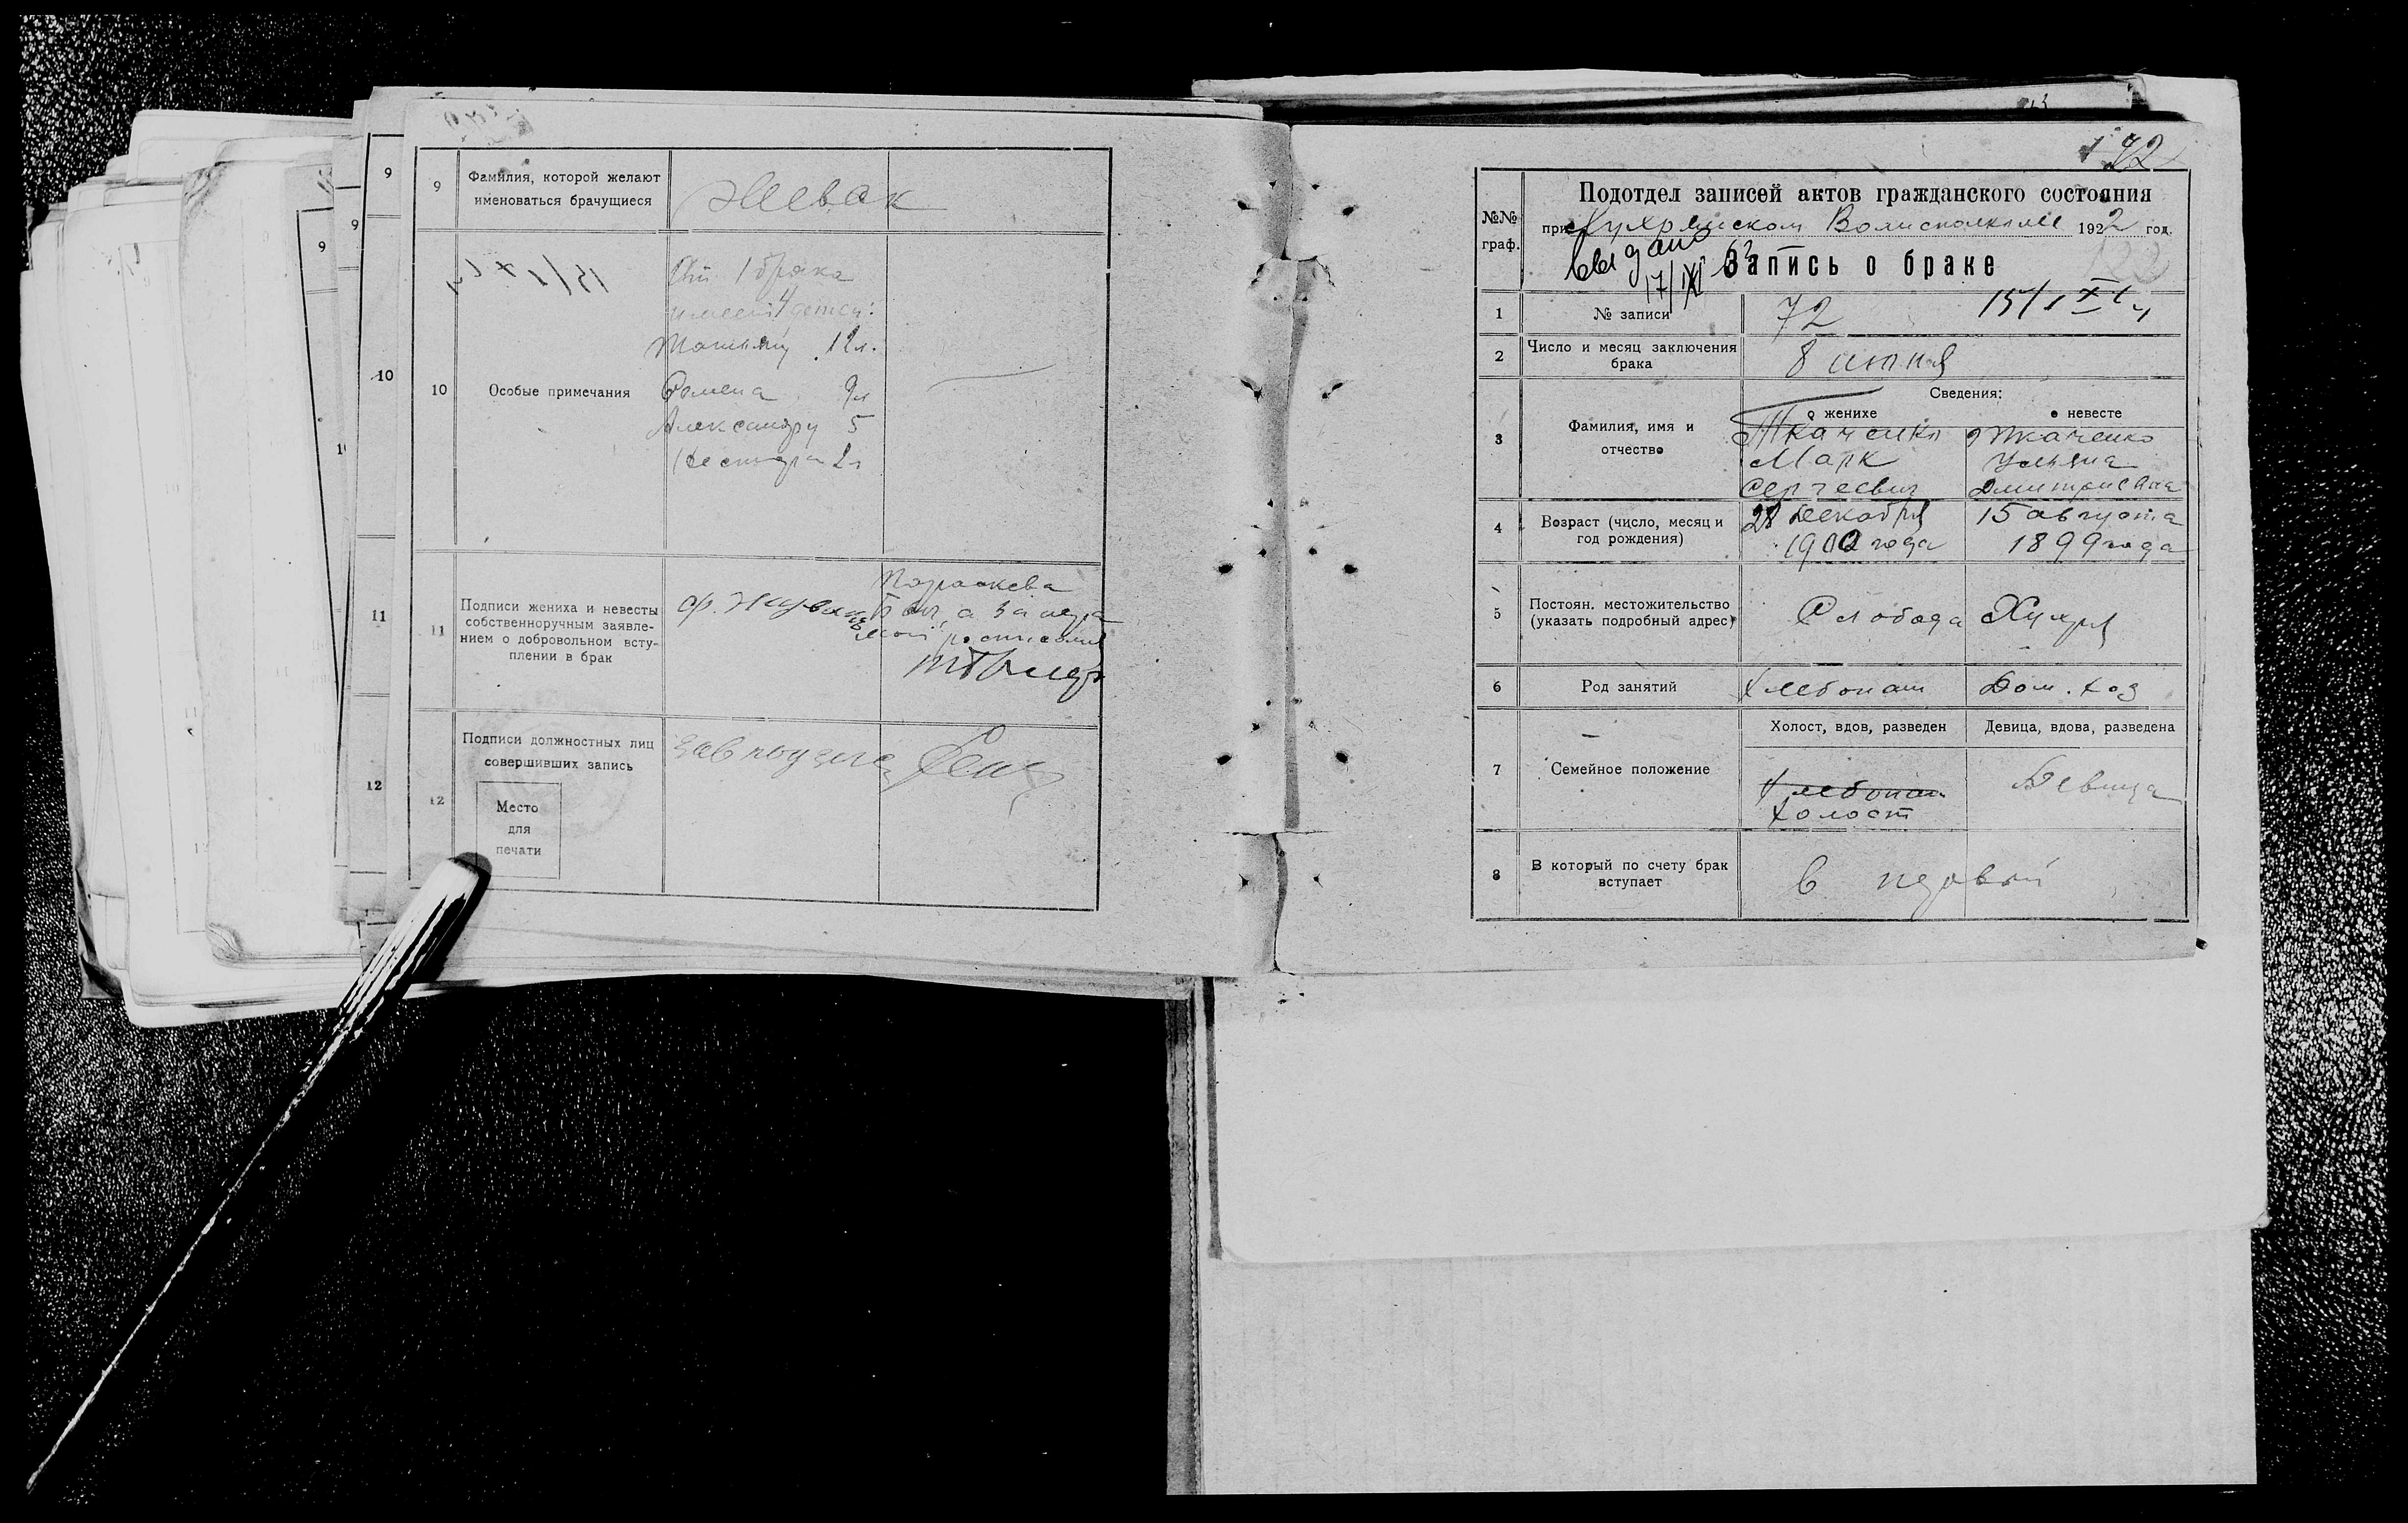 9
Фамилия, которой желают
именоваться брачущиеся
10
Особые примечания
От 1 брака
имеет 4 детей:
Татьяну 12 л.
Семена 9 л
Александру 5
Нестера 2 л
11
Подписи жениха и невесты
собственноручным заявле-
нием о добровольном всту-
плении в брак
Параскева
12
Подписи должностных лиц
совершивших запись
Место
для
печати
172
№№
граф.
Подотдел записей актов гражданского состояния
при Хухрянском Волисполкоме 1922 год.
выдано
Запись о браке
1
№ записи
72
2
Число и месяц заключения
брака
8 июня
3
Фамилия, имя и
отчество
Сведения:
о женихе
о невесте
Ткаченко
Марк
Сергеевич
Ткаченко
Ульяна
Дмитриевна
4
Возраст (число, месяц и
год рождения)
28 декабря
1900 года
15 августа
1899 года
5
Постоян. местожительство
(указать подробный адрес)
Слобода Хухря
6
Род занятий
Хлебопаш
Дом. хоз
7
Семейное положение
Холост, вдов, разведен
Девица, вдова, разведена
Хлебопаш
Холост
Девица
8
В который по счету брак
вступает
в первый